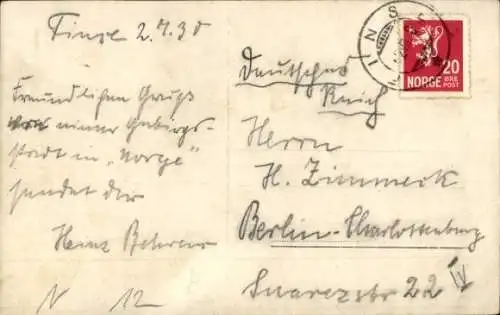 Finse 2.7.30
Freundlichen Gruß
von einer Gebirgs-
stadt in „Norge"
sendet dir
Heinz Behrens
N 12
FINSE
20
NORGE ØRE
POST
Deutsches
Reich
Herrn
H. Zimmeck
Berlin-Charlottenburg
Suarezstr 22 IV